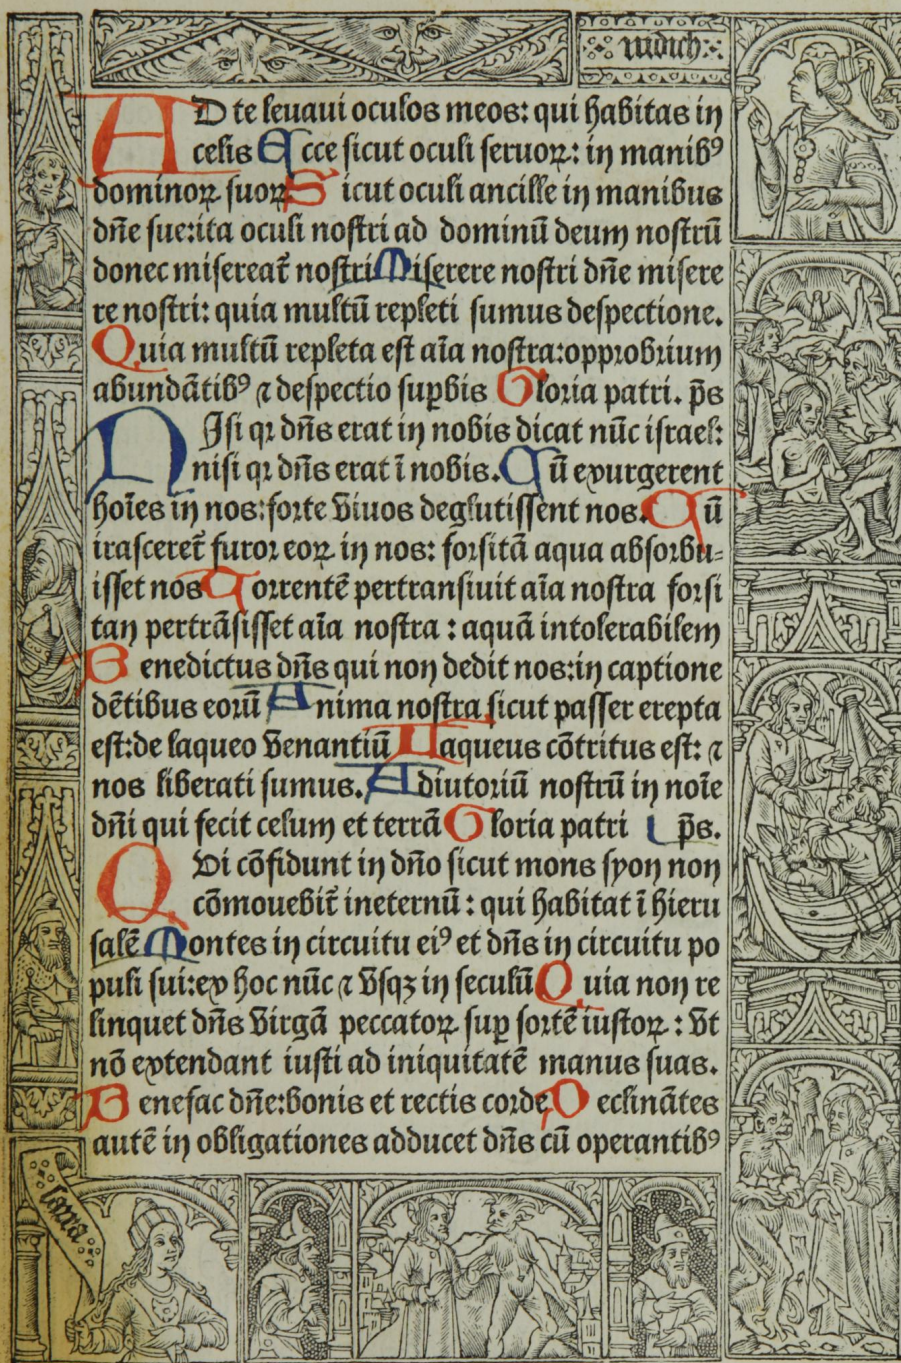 iudich
AD te levavi oculos meos: qui habitas in
celis Ecce sicut oculi servoꝝ: in manibꝰ
dominoꝝ suoꝝ Sicut oculi ancille in manibus
dñe sue:ita oculi nostri ad dominū deum nostrū
donec misereat̃ nostri Miserere nostri dñe misere
re nostri: quia multū repleti sumus despectione.
Quia multū repleta est aīa nostra:opprobrium
abundātibꝰ ⁊ despectio suꝑbis Gloria patri. p̄s
NIsi qꝛ dñs erat in nobis dicat nūc israel:
nisi qꝛ dñs erat ī nobis. Cū exurgerent
hoīes in nos:forte vivos deglutissent nos. Cū
irasceret̃ furor eoꝝ in nos: forsitā aqua absorbu⸗
isset nos Torrentē pertransivit aīa nostra forsi
tan pertrāsisset aīa nostra : aquā intolerabilem
Benedictus dñs qui non dedit nos:in captione
dētibus eorū Anima nostra sicut passer erepta
est:de laqueo venantiū Laqueus cōtritus est: ⁊
nos liberati sumus. Adiutoriū nostrū in noīe
dñi qui fecit celum et terrā Gloria patri p̄s.
QVi cōfidunt in dño sicut mons syon non
cōmovebit̃ ineternū : qui habitat ī hieru
salē Montes in circuitu eiꝰ et dñs in circuitu po
puli sui:ex hoc nūc ⁊ vsqꝫ in seculū Quia non re
linquet dñs virgā peccatoꝝ suꝑ sortē iustoꝝ : vt
nō extendant iusti ad iniquitatē manus suas.
Benefac dñe:bonis et rectis corde Declinātes
autē in obligationes adducet dñs cū operantibꝰ